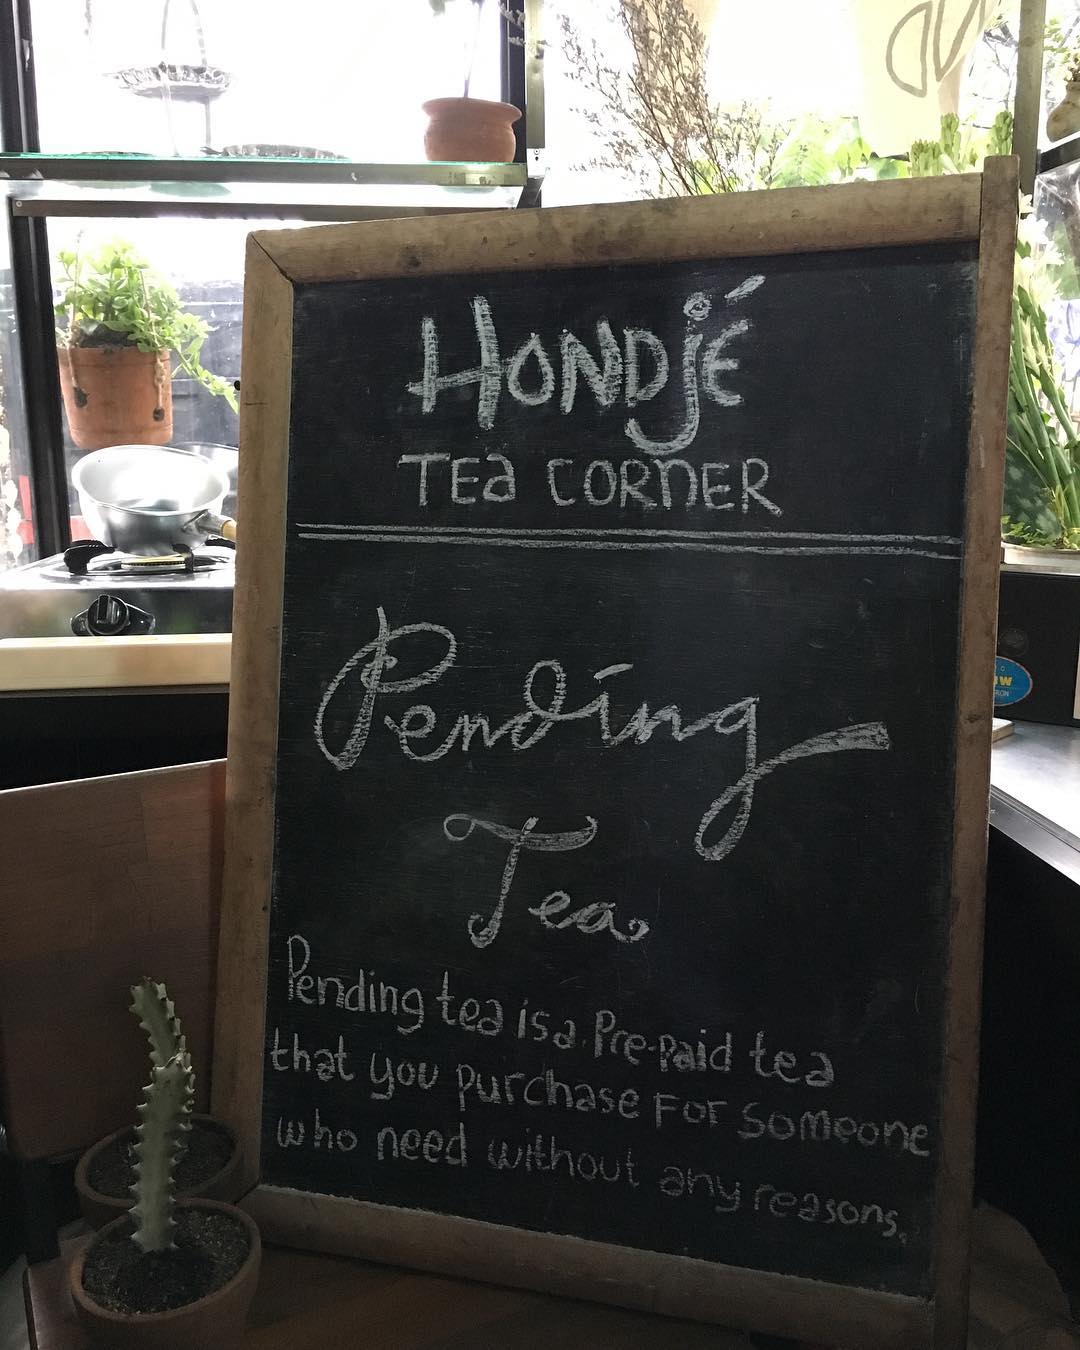 HONDjé
TEa CORNER
Pending
Tea
Pending tea is a Pre-paid tea
that you purchase FOR someone
who need without any reasons.